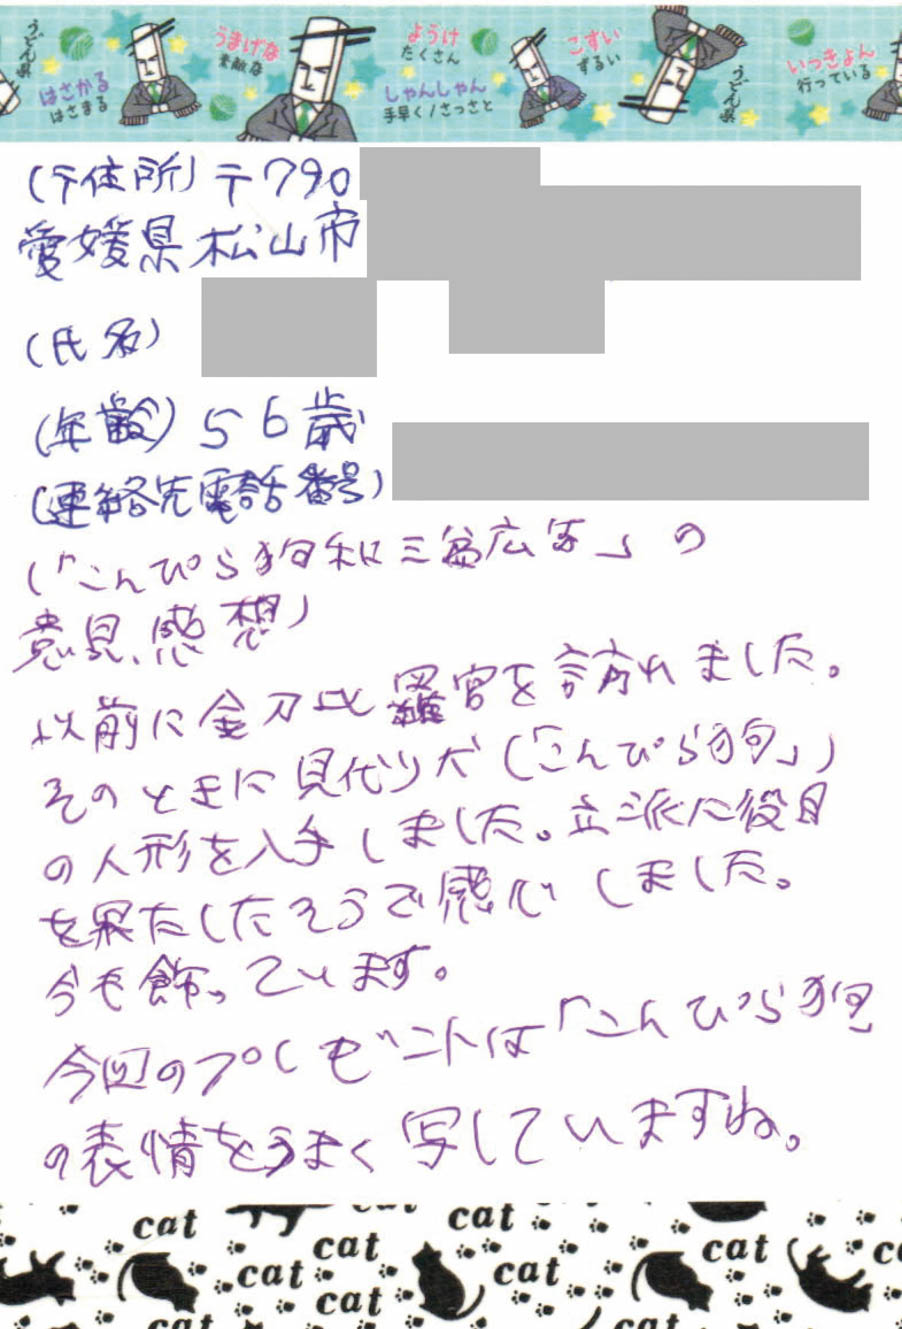 うどん県
はさかる
はさまる
うまげな
素敵な
ようけ
たくさん
しゃんしゃん
手早く/さっさと
こすい
ずるい
うどん県
いっきょん
行っている
(〒住所) 〒790
愛媛県松山市
(氏名)
(年齢) 56歳
(連絡先電話番号)
(「こんぴら狗和三盆広告」の
意見、感想)
以前に金刀比羅宮を訪れました。
そのときに代り犬(「こんぴら狗」)
の人形を入手しました。立派に役目
を果たしたそうで感心しました。
今も飾っています。
今回のプレゼントは「こんぴら狗
の表情をうまく写していますね。
cat
cat
cat
cat
cat
cat
cat
cat
cat